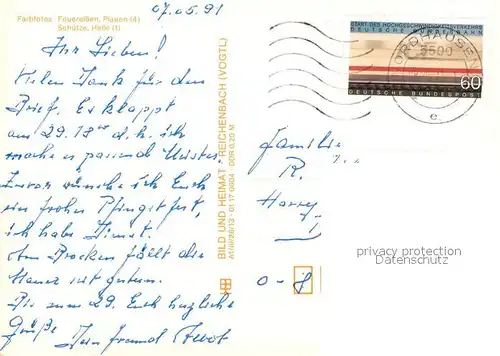 Farbfotos Feuereißen, Plauen (4)
Schütze, Halle (1)
07.05.91
Ihr Lieben!
Vielen Dank für den
Brief. Es klappt
am 29. 18⁰⁰ d.h. ich
mache es passend
Zuvor wünsche ich Euch
ein frohes Pfingstfest,
ich habe Dienst.
Am Brocken fällt die
Mauer mit gutem.
Bis zum 29. Euch herzliche
Grüße Dein Freund
BILD UND HEIMAT REICHENBACH (VOGTL)
DDR 0,20 M
START DES HOCHGESCHWINDIGKEITSVERKEHRS
DEUTSCHE BUNDESBAHN
60
DEUTSCHE BUNDESPOST
NORDHAUSEN
5500
e
Familie
R.
Harry
0-8
privacy protection
Datenschutz